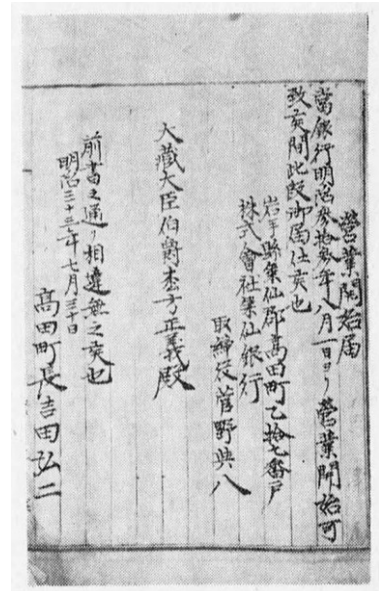 營業開始届
當銀行明治参拾参年八月一日ヨリ營業開始可
致候間此段御届仕候也
岩手縣氣仙郡高田町乙拾七番戸
株式會社氣仙銀行
取締役菅野與八
大藏大臣伯爵松方正義殿
前書之通リ相違無之候也
明治三十三年七月三十日
高田町長吉田弘二